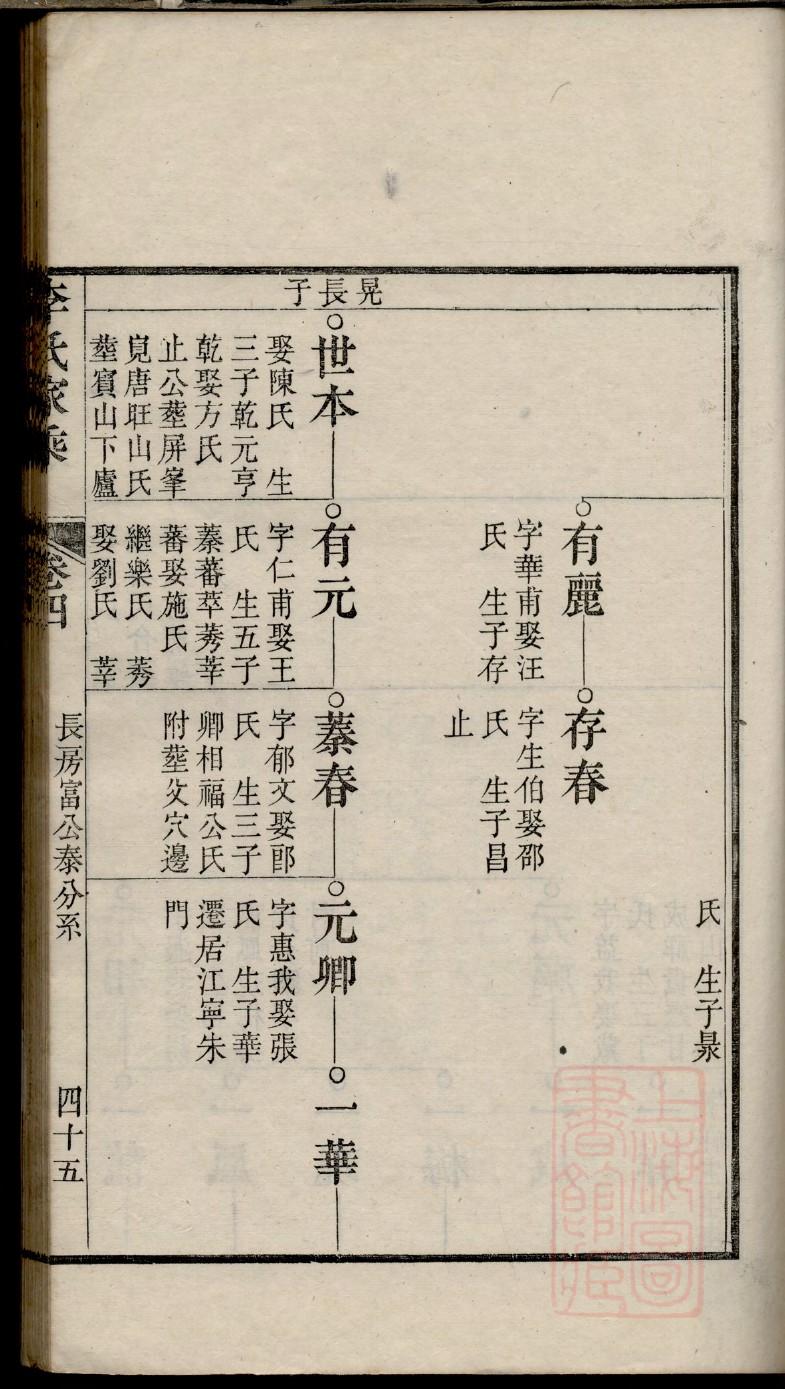 氏　生子景
有麗
字華甫娶汪
氏　生子存
存春
字生伯娶邵
氏　生子昌
止
晃長子
世本
娶陳氏　生
三子乾元亨
乾娶方氏
止公塟屏峯
覓唐旺山氏
塟賓山下廬
有元
字仁甫娶王
氏　生五子
蓁蕃萃莠莘
蕃娶施氏
繼樂氏　莠
娶劉氏　莘
蓁春
字郁文娶郎
氏　生三子
卿相福公氏
附塟父穴邊
元卿
字惠我娶張
氏　生子華
遷居江寧朱
門
一華
李氏家乘
卷四
長房富公泰分系
四十五
上海圖書館藏